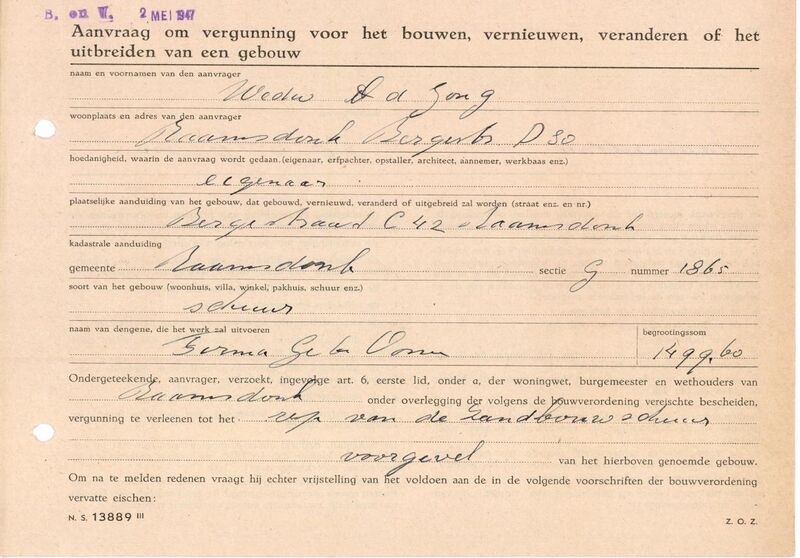 B. en W. 2 MEI 1947
Aanvraag om vergunning voor het bouwen, vernieuwen, veranderen of het
uitbreiden van een gebouw
naam en voornamen van den aanvrager
Wedu A d Jong
woonplaats en adres van den aanvrager
Raamsdonk Bergestr D 30
hoedanigheid, waarin de aanvraag wordt gedaan.(eigenaar, erfpachter, opstaller, architect, aannemer, werkbaas enz.)
eigenaar
plaatselijke aanduiding van het gebouw, dat gebouwd, vernieuwd, veranderd of uitgebreid zal worden (straat enz. en nr.)
Bergestraat C 42 Raamsdonk
kadastrale aanduiding
gemeente Raamsdonk sectie G nummer 1865
soort van het gebouw (woonhuis, villa, winkel, pakhuis, schuur enz.)
schuur
naam van dengene, die het werk zal uitvoeren begrootingssom
Firma Gebr 1499.60
Ondergeteekende, aanvrager, verzoekt, ingevolge art. 6, eerste lid, onder a, der woningwet, burgemeester en wethouders van
Raamsdonk onder overlegging der volgens de bouwverordening vereischte bescheiden,
vergunning te verleenen tot het van de Landbouwschuur
voorgevel van het hierboven genoemde gebouw.
Om na te melden redenen vraagt hij echter vrijstelling van het voldoen aan de in de volgende voorschriften der bouwverordening
vervatte eischen:
N. S. 13889 III Z. O. Z.